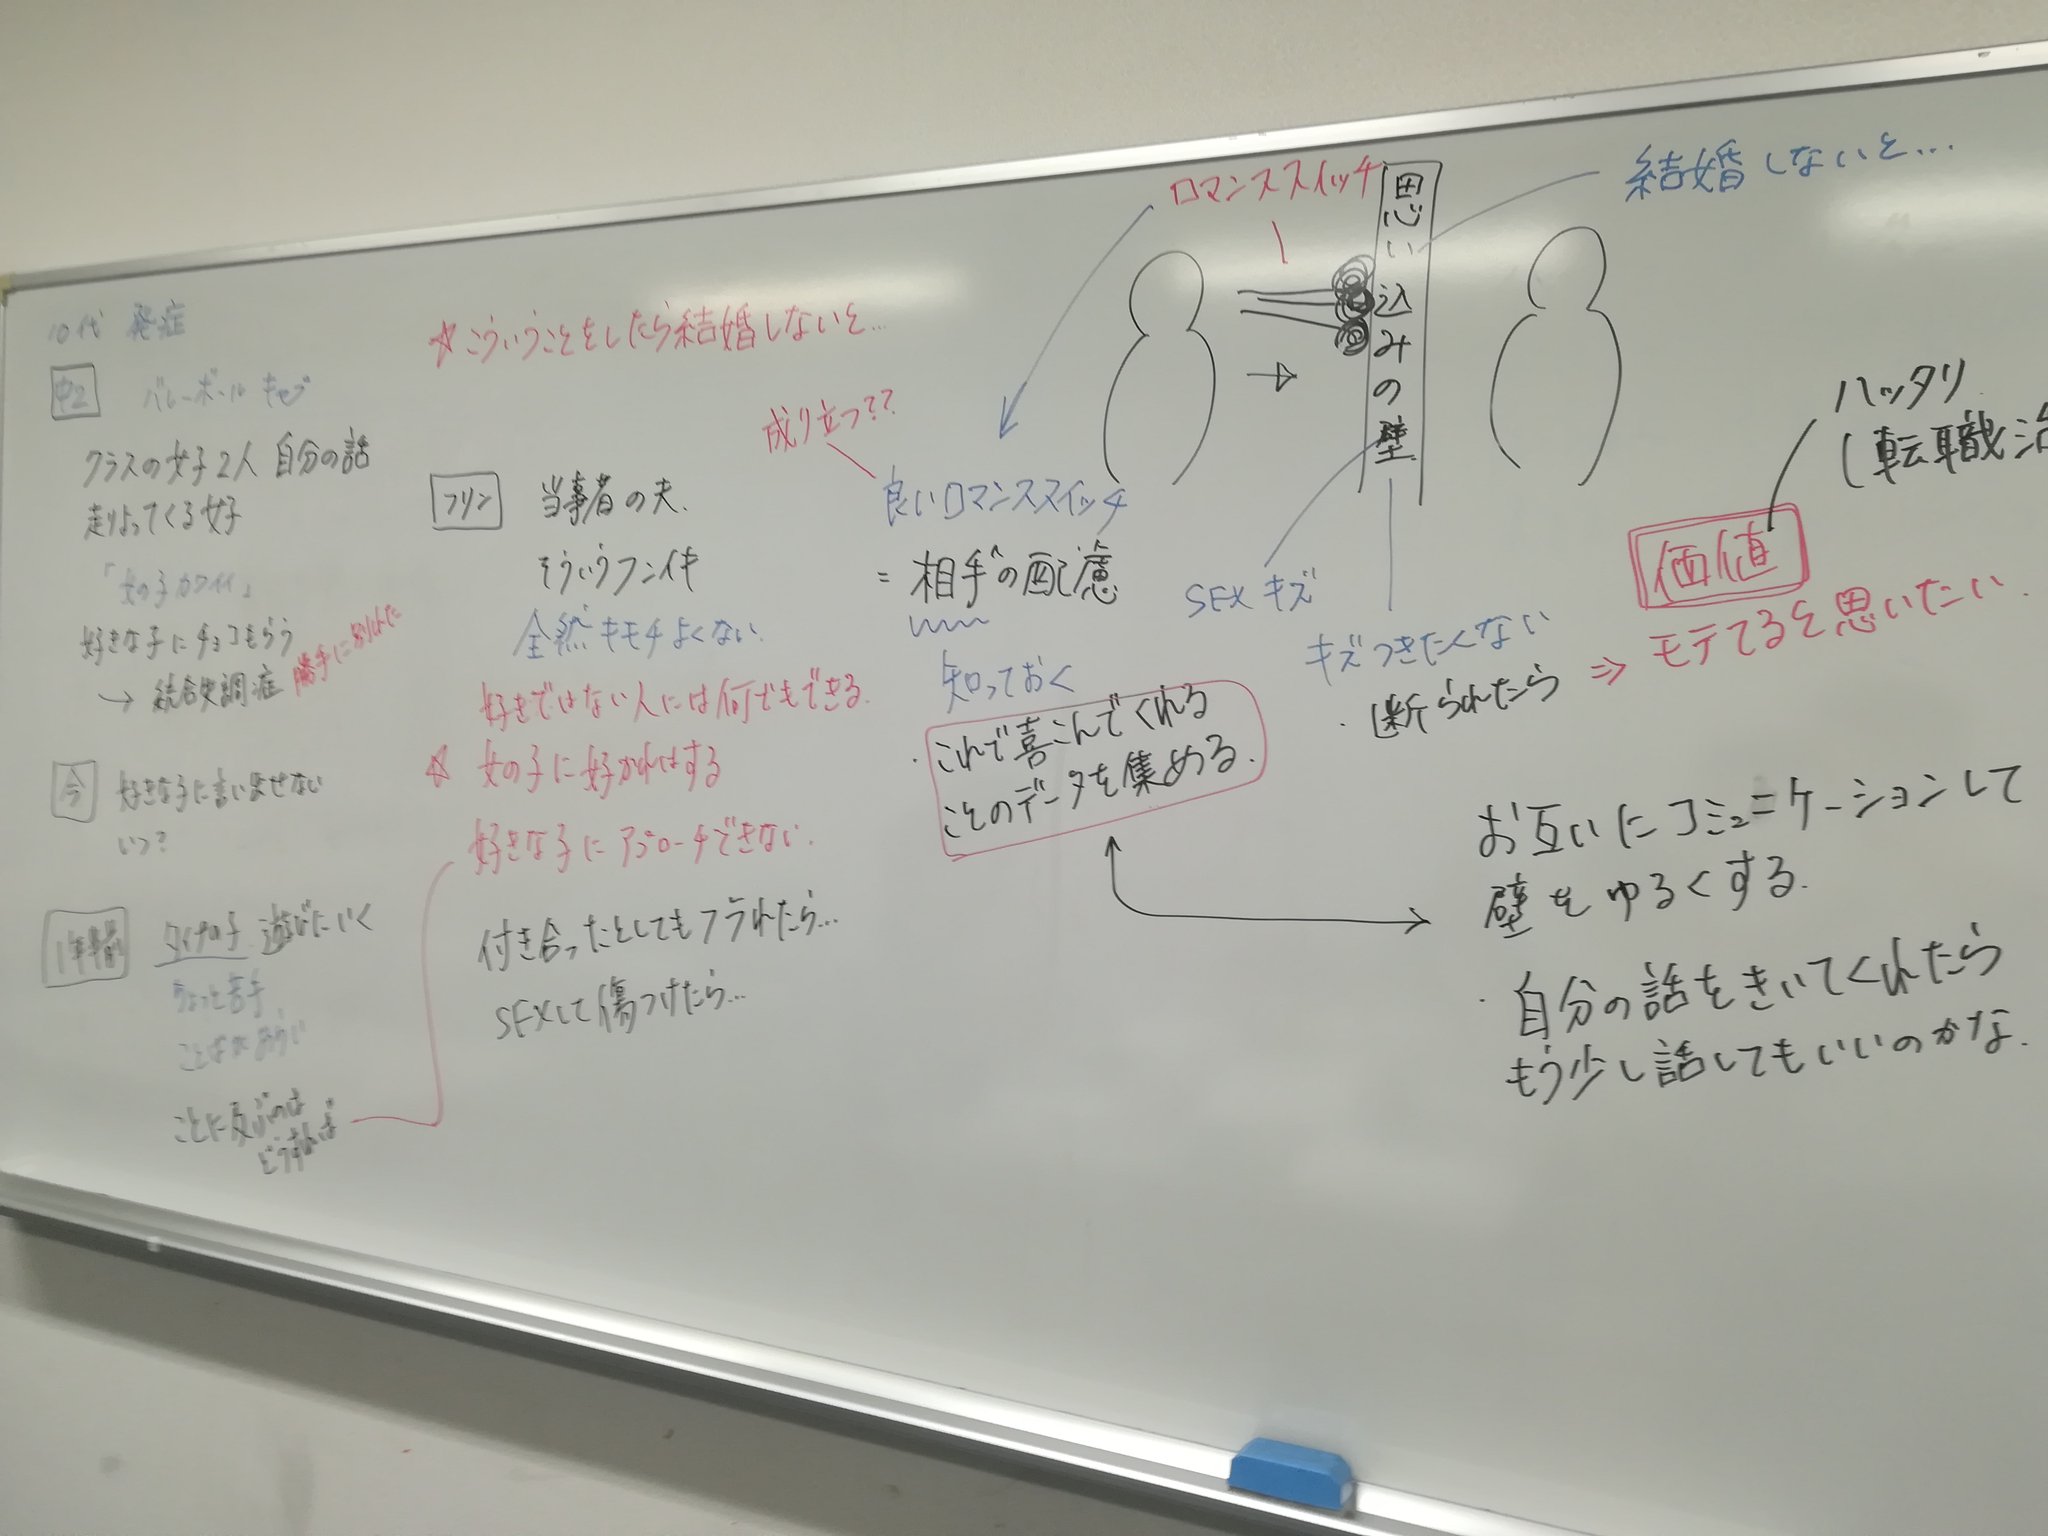 10代 発症
中2 バレーボール キャプ
クラスの女子2人 自分の話
走りよってくる女子
「女の子カワイイ」
好きな子にチョコもらう
→ 統合失調症 勝手に
今 好きな子に言いませない
いつ?
1年半前 タイプの子 遊びにいく
ちょっと苦手
ことばがあらい
ことに及ぶのは
どうすれば
☆こういうことをしたら結婚しないと…
フリン 当事者の夫.
そういうフンイキ
全然キモチよくない.
好きではない人には何でもできる.
☆ 女の子に好かれはする
好きな子にアプローチできない.
付き合ったとしてもフラれたら…
SEXして傷つけたら…
成り立つ??
良いロマンススイッチ
= 相手の配慮
知っておく
・これで喜こんでくれる
ことのデータを集める.
ロマンススイッチ
思い込みの壁
結婚しないと…
SEXキズ
キズつきたくない
・断られたら ⇒ モテてると思いたい.
価値
ハッタリ
(転職活
お互いにコミュニケーションして
壁をゆるくする.
・自分の話をきいてくれたら
もう少し話してもいいのかな.